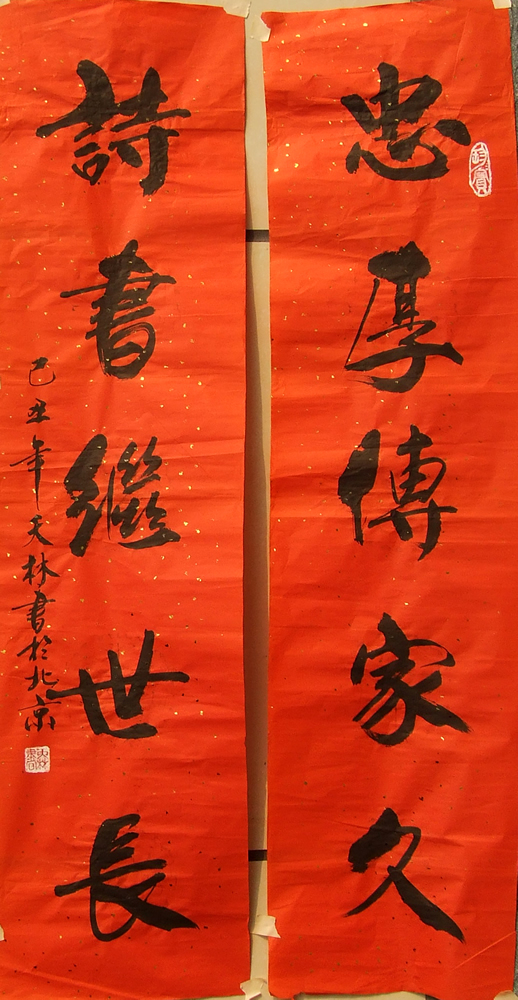 忠厚傳家久
詩書繼世長
己丑年天林書於北京